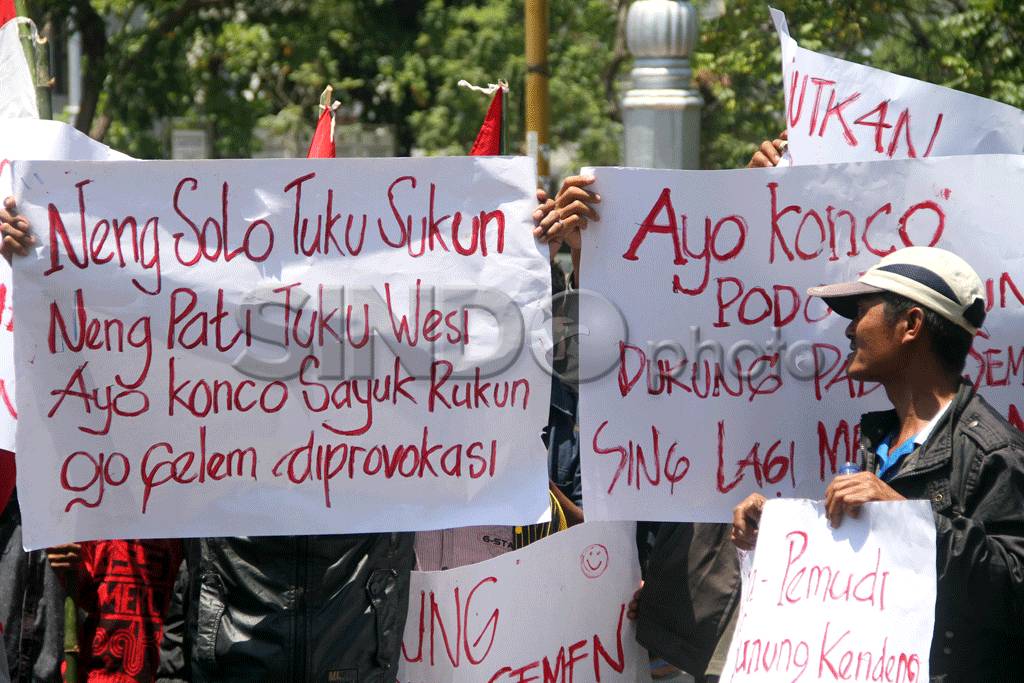 Neng Solo Tuku Sukun
Neng Pati Tuku Wesi
Ayo konco Sayuk Rukun
ojo gelem diprovokasi
UTKAN
Ayo Konco
PODO
DUKUNG
SING LAGI
SEMEN
Pemudi
Kendeng
6-STA
SINDOphoto